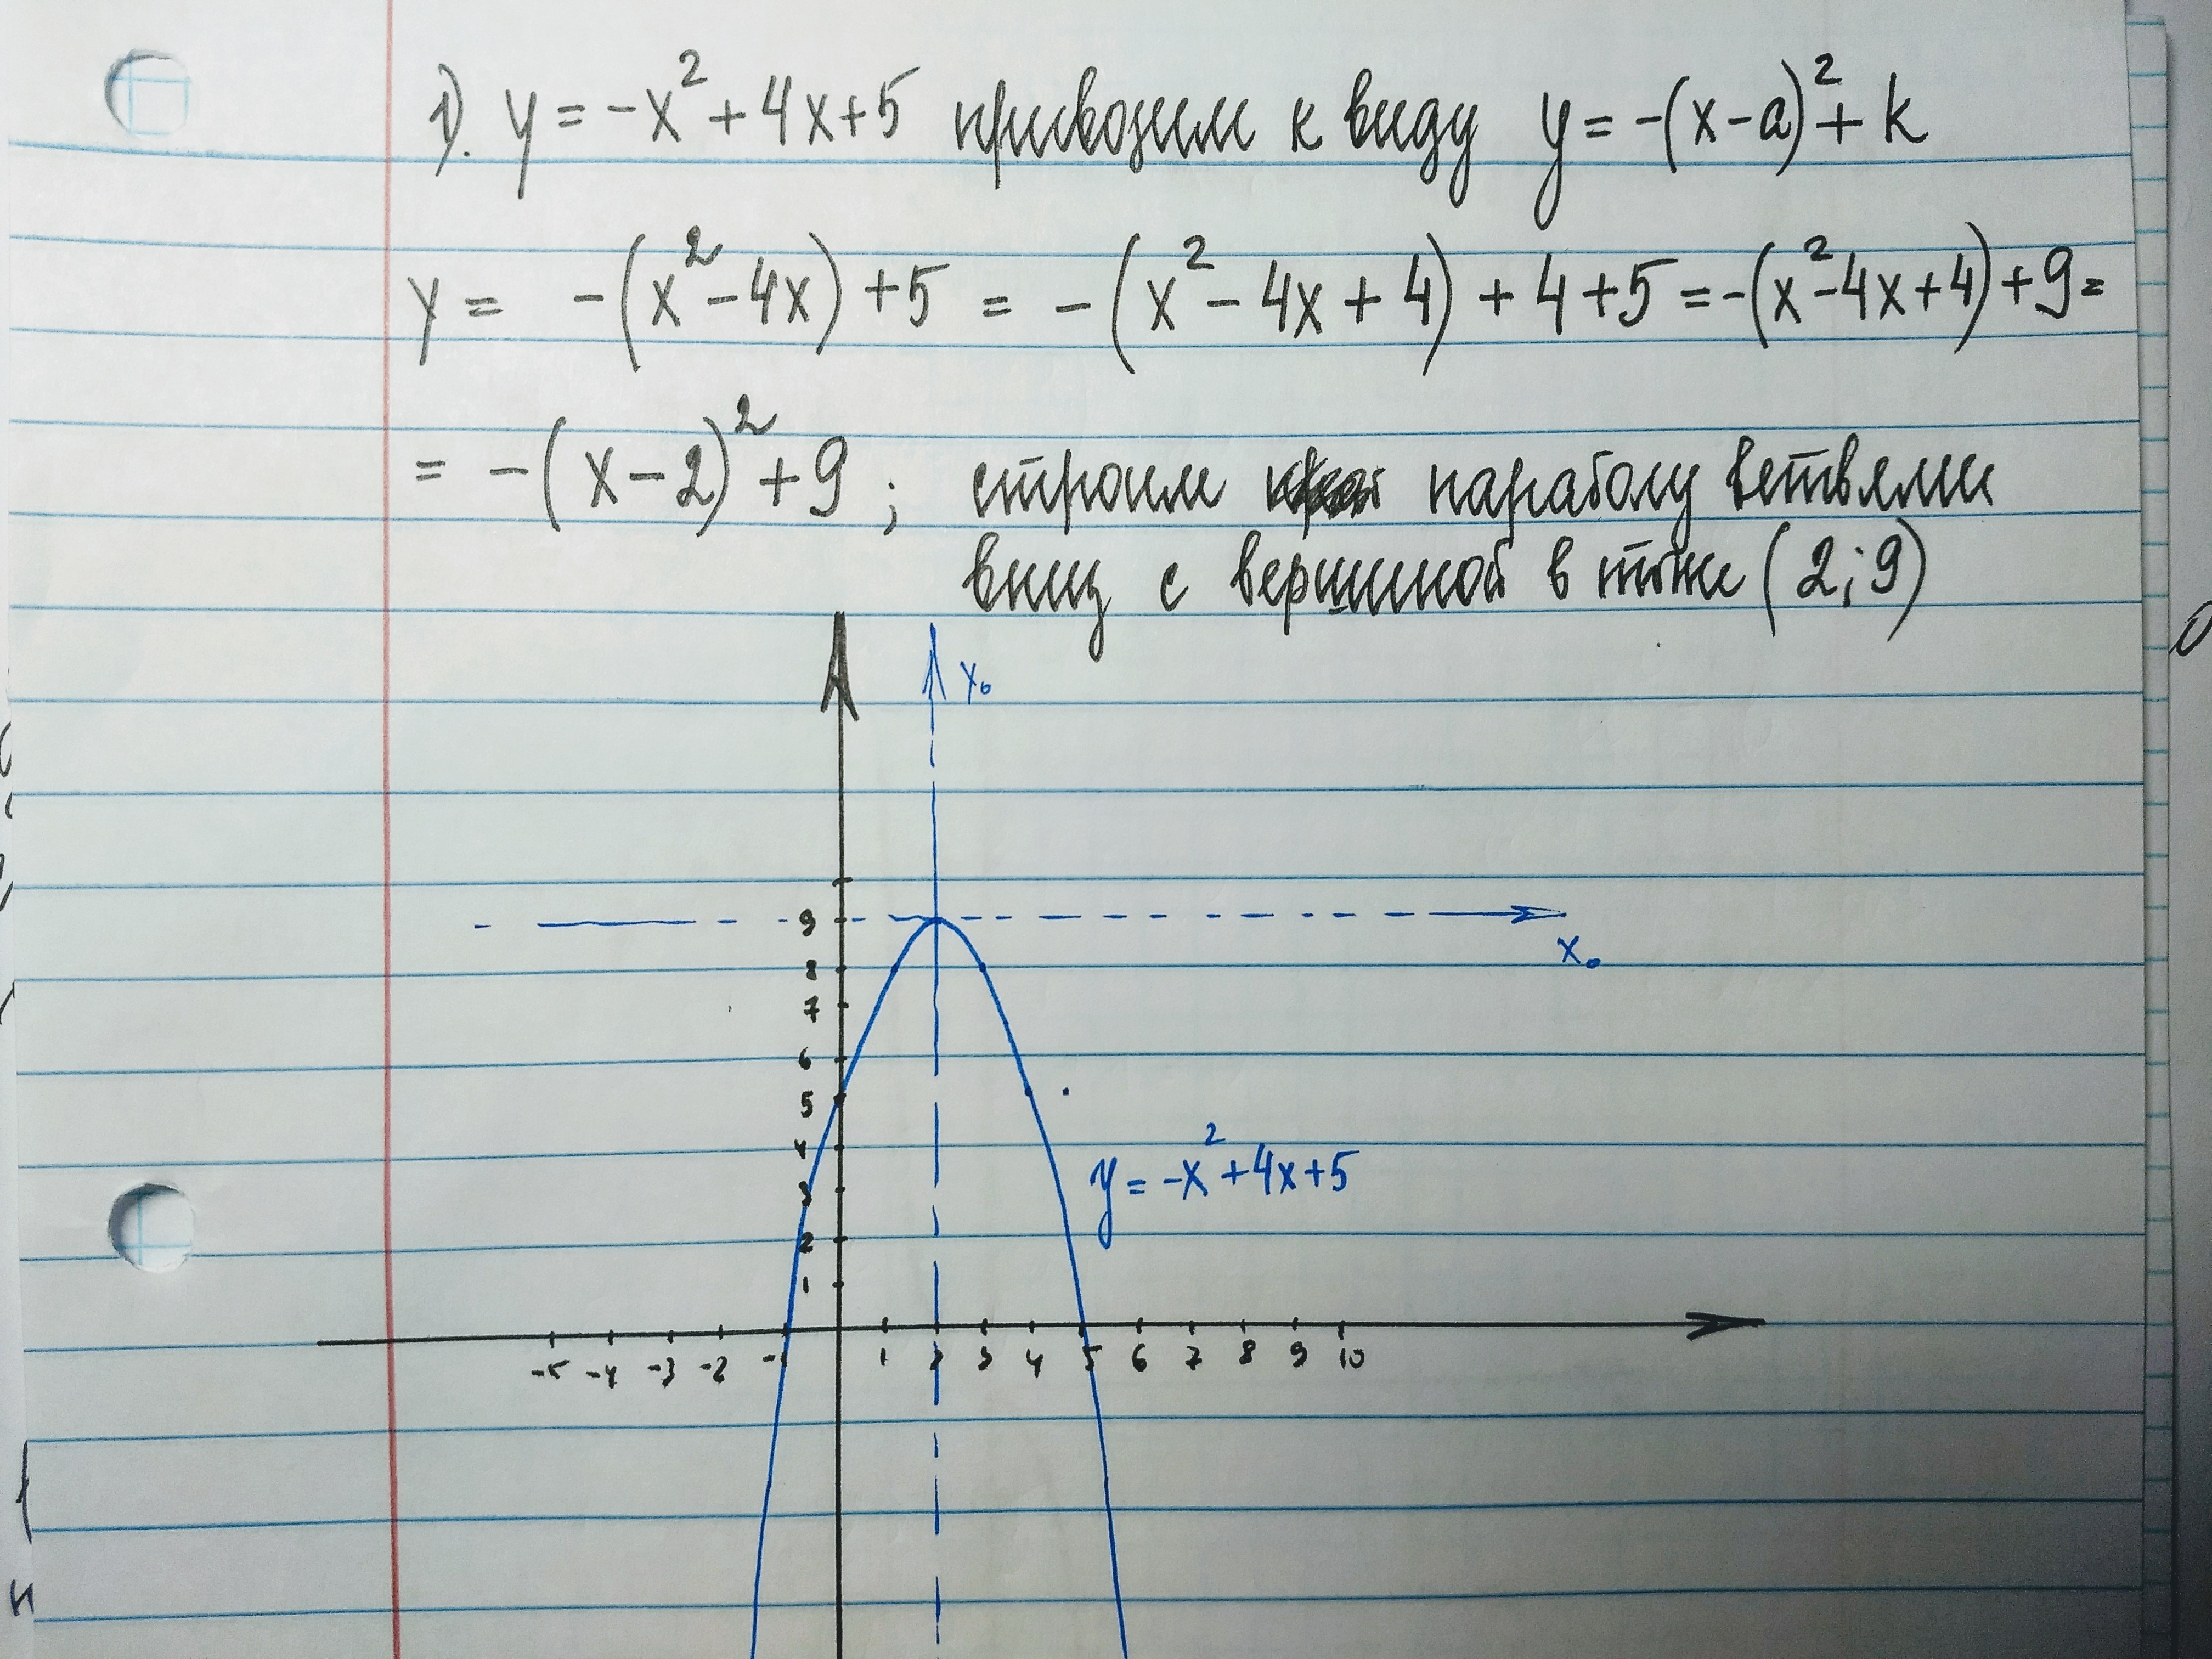 1). y = -x² + 4x + 5 приводим к виду y = -(x - a)² + k
y = -(x² - 4x) + 5 = -(x² - 4x + 4) + 4 + 5 = -(x² - 4x + 4) + 9 =
= -(x - 2)² + 9 ; строим параболу ветвями
вниз с вершиной в точке (2; 9)
y₀
9
x₀
8
7
6
5
4
y = -x² + 4x + 5
3
2
1
-5 -4 -3 -2 -1 1 2 3 4 5 6 7 8 9 10